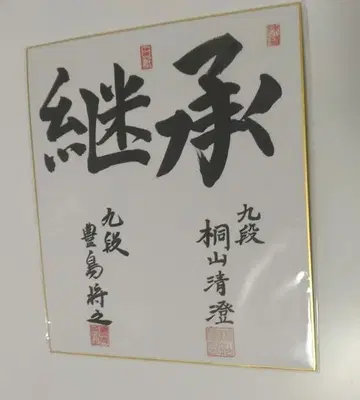 継承
九段
桐山清澄
九段
豊島将之